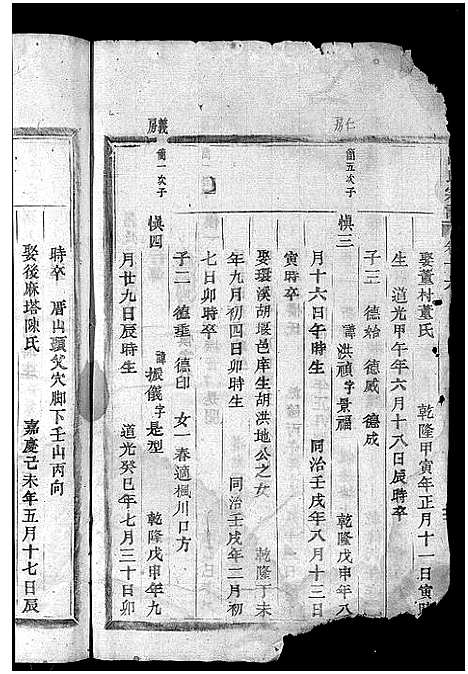 娶董村董氏 乾隆甲寅年正月十一日寅時
生 道光甲午年六月十八日辰時卒
子三 德給 德威 德成
仁房
簡五次子
慎三 諱洪禎字景福 乾隆戊申年八
月十六日午時生 同治壬戌年八月十三日
寅時卒
娶環溪胡堰邑庠生胡洪地公之女 乾隆丁未
年九月初四日卯時生 同治壬戌年二月初
七日卯時卒
子二 德垂 德印 女一春適楓川口方
義房
簡一次子
慎四 諱振儀字是型 乾隆戊申年九
月廿九日辰時生 道光癸巳年七月三十日卯
時卒 厝山頭父穴脚下壬山丙向
娶後麻塔陳氏 嘉慶己未年五月十七日辰